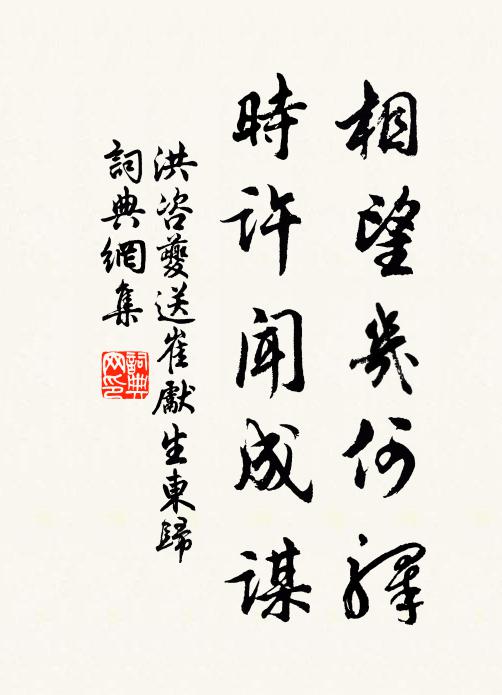 相望幾何驛
時許聞成謀
洪咨夔送崔獻生東歸
詞典網集
詞典网印